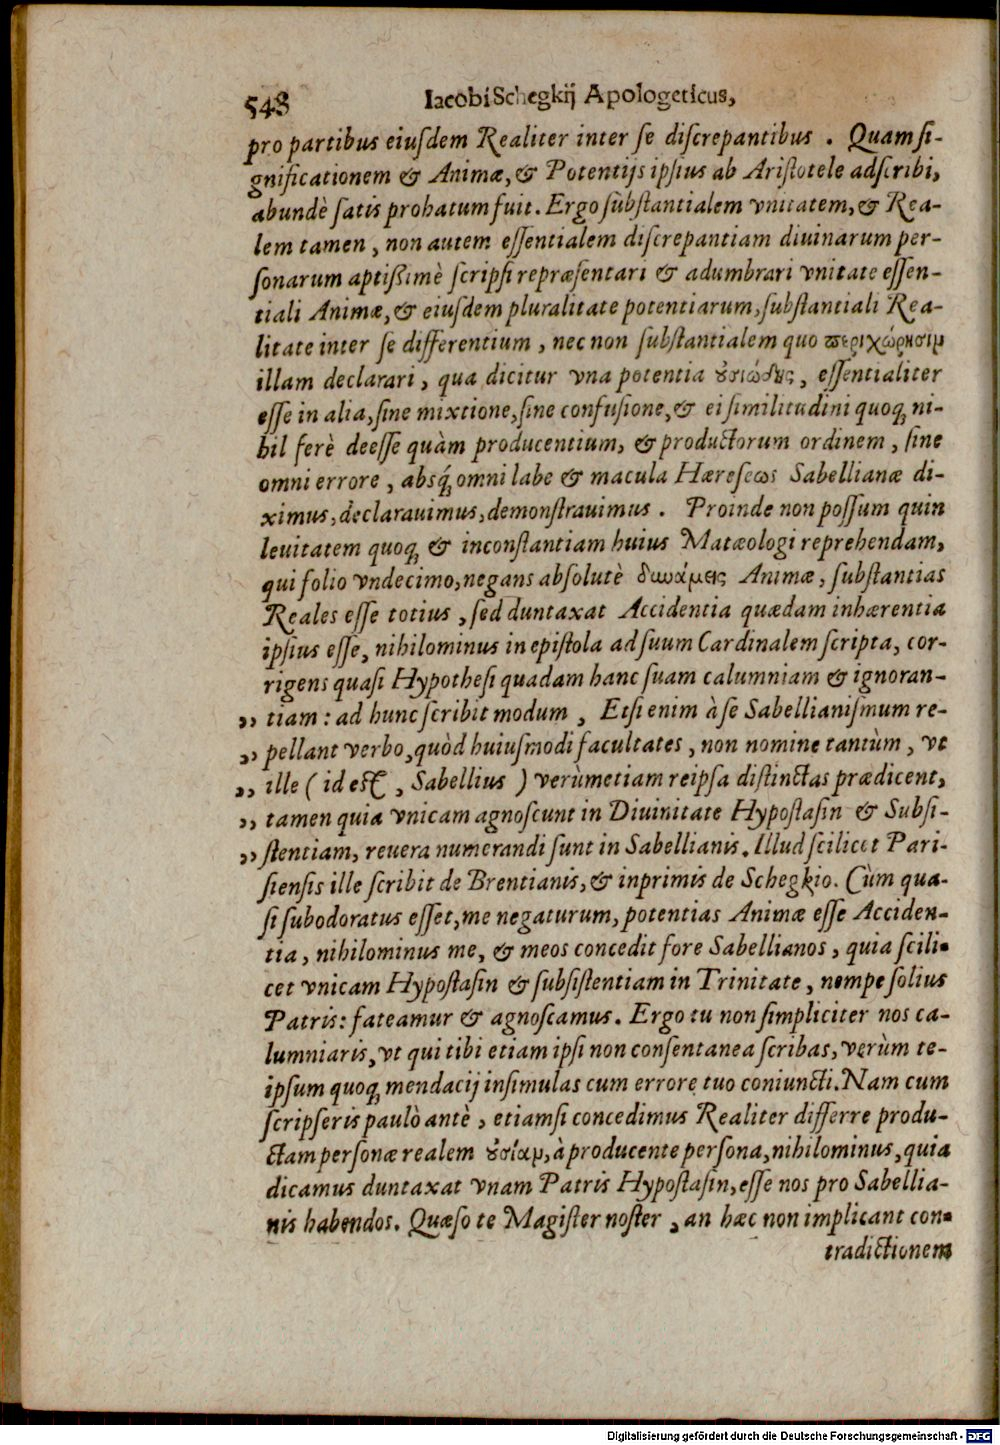 548 Iacobi Schegkij Apologeticus,
pro partibus eiuſdem Realiter inter ſe diſcrepantibus . Quam ſi-
gnificationem & Animæ, & Potentijs ipſius ab Ariſtotele adſcribi,
abundè ſatis probatum fuit. Ergo ſubſtantialem vnitatem, & Rea-
lem tamen , non autem eſſentialem diſcrepantiam diuinarum per-
ſonarum aptißimè ſcripſi repræſentari & adumbrari vnitate eſſen-
tiali Animæ, & eiuſdem pluralitate potentiarum, ſubſtantiali Rea-
litate inter ſe differentium , nec non ſubſtantialem quo περιχώρησιμ
illam declarari , qua dicitur vna potentia ȣ̓σιώδης, eſſentialiter
eſſe in alia, ſine mixtione, ſine confuſione, & ei ſimilitudini quoq; ni-
hil ferè deeſſe quàm producentium, & productorum ordinem , ſine
omni errore , absq́; omni labe & macula Hæreſeωs Sabellianæ di-
ximus, declarauimus, demonſtrauimus . Proinde non poſſum quin
leuitatem quoq; & inconſtantiam huius Matæologi reprehendam,
qui folio vndecimo, negans abſolutè δυνάμεις Animæ, ſubſtantias
Reales eſſe totius , ſed duntaxat Accidentia quædam inhærentia
ipſius eſſe, nihilominus in epiſtola ad ſuum Cardinalem ſcripta, cor-
rigens quaſi Hypotheſi quadam hanc ſuam calumniam & ignoran-
„ tiam : ad hunc ſcribit modum , Etſi enim à ſe Sabellianiſmum re-
„ pellant verbo, quòd huiuſmodi facultates , non nomine tantùm , vt
„ ille ( id eſt , Sabellius ) verùm etiam reipſa diſtinctas prædicent,
„ tamen quia vnicam agnoſcunt in Diuinitate Hypoſtaſin & Subſi-
„ ſtentiam, reuera numerandi ſunt in Sabellianis. Illud ſcilicet Pari-
ſienſis ille ſcribit de Brentianis, & inprimis de Schegkio. Cùm qua-
ſi ſubodoratus eſſet, me negaturum, potentias Animæ eſſe Acciden-
tia , nihilominus me, & meos concedit fore Sabellianos , quia ſcili-
cet vnicam Hypoſtaſin & ſubſiſtentiam in Trinitate , nempe ſolius
Patris: fateamur & agnoſcamus. Ergo tu non ſimpliciter nos ca-
lumniaris, vt qui tibi etiam ipſi non conſentanea ſcribas, verùm te-
ipſum quoq; mendacij inſimulas cum errore tuo coniuncti. Nam cum
ſcripſeris paulò antè , etiamſi concedimus Realiter differre produ-
ctam perſonæ realem ȣ̓σίαμ, à producente perſona, nihilominus, quia
dicamus duntaxat vnam Patris Hypoſtaſin, eſſe nos pro Sabellia-
nis habendos. Quæſo te Magiſter noſter , an hæc non implicant con-
tradictionem
Digitalisierung gefördert durch die Deutsche Forschungsgemeinschaft - DFG